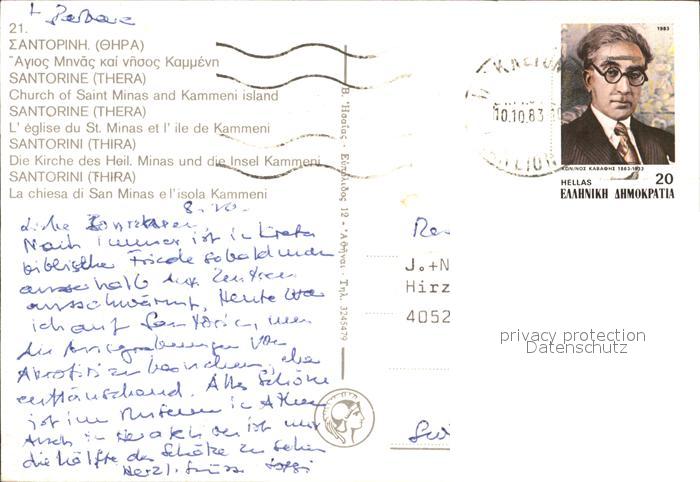 Barbara
21.
ΣΑΝΤΟΡΙΝΗ. (ΘΗΡΑ)
Ἅγιος Μηνᾶς καί νῆσος Καμμένη
SANTORINE (THERA)
Church of Saint Minas and Kammeni island
SANTORINE (THERA)
L' église du St. Minas et l' ile de Kammeni
SANTORINI (THIRA)
Die Kirche des Heil. Minas und die Insel Kammeni
SANTORINI (THIRA)
La chiesa di San Minas e l'isola Kammeni
8.10.
Liebe
Noch immer ist in Kreta
biblischer Friede sobald man
ausserhalb der Zentren
ausschwärmt. Heute war
ich auf Santorin, um
die Ausgrabungen von
Akrotiri zu besuchen, eher
enttäuschend. Alles Schöne
ist im Museum in Athen
Auch in Heraklion ist nur
die Hälfte der Schätze zu sehen
Herzl. Grüsse
Β. Ἡσαΐας - Εὐπόλιδος 12 - Ἀθῆναι - Τηλ. 3245479
10.10.83
1983
ΚΩΝ/ΝΟΣ ΚΑΒΑΦΗΣ 1863-1933
HELLAS 20
ΕΛΛΗΝΙΚΗ ΔΗΜΟΚΡΑΤΙΑ
J.+N
Hirz
4052
privacy protection
Datenschutz